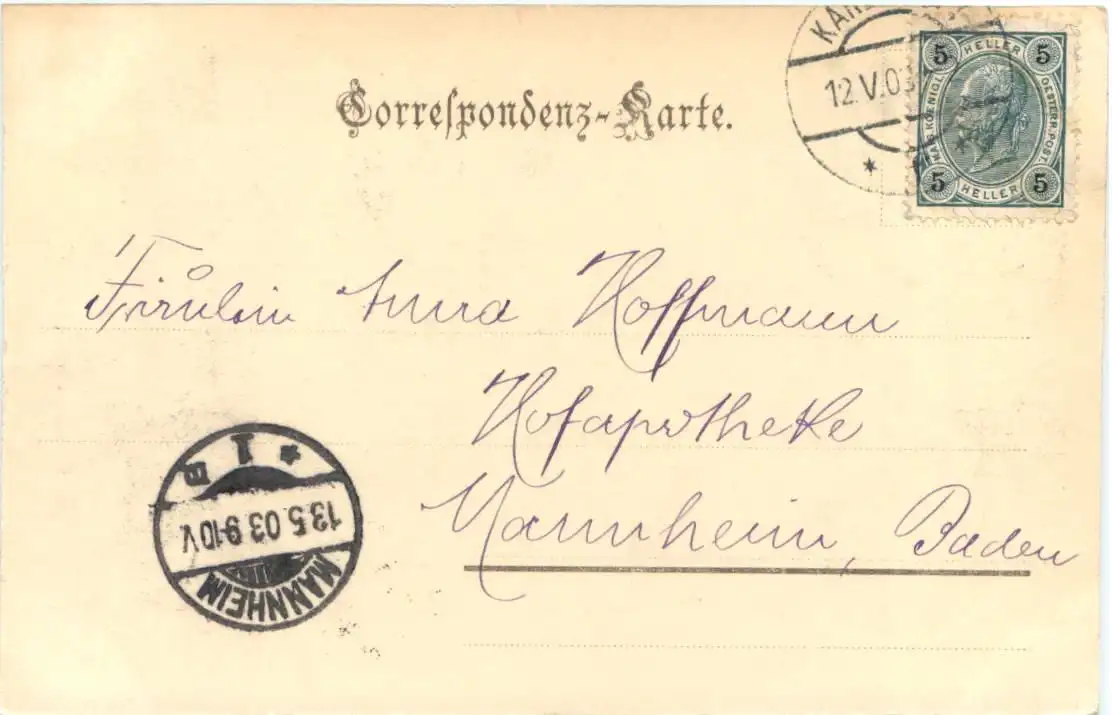 Correspondenz-Karte.
12.V.03
5 HELLER 5
KAIS. KOENIGL. OESTERR. POST.
5 HELLER 5
Fräulein Anna Hoffmann
Hofapotheke
Mannheim, Baden
MANNHEIM
13.5.03 9-10V
* 1 B